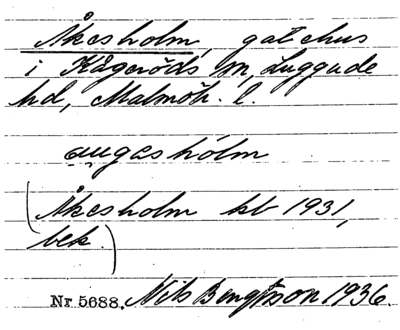 Åkesholm, gatehus
i Kågeröds sn, Luggude
hd, Malmöh. l.
åugashólm
(Åkesholm kb 1931,
bek.)
Nr 5688. Nils Bengtsson 1936.